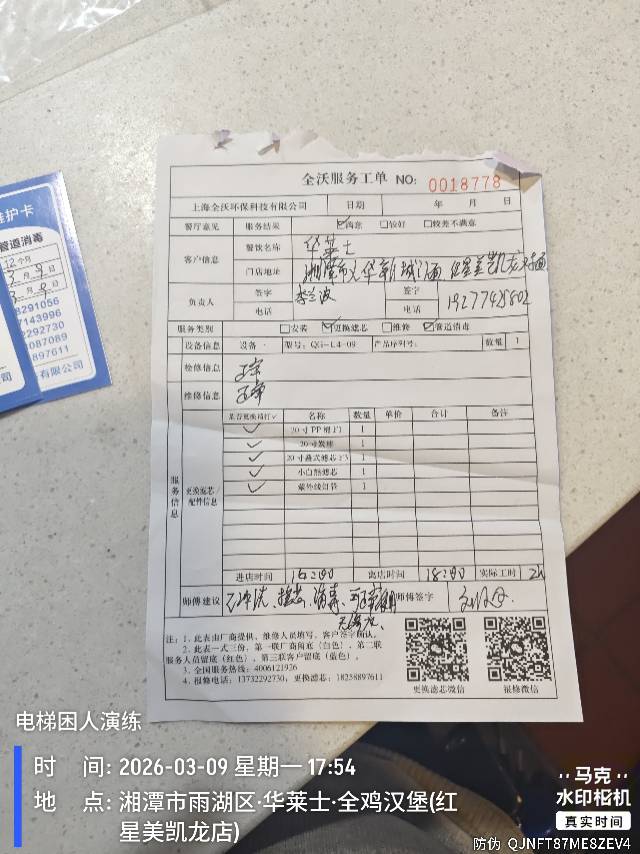 维护卡
管道消毒
12个月
3月9日
月 日
8291056
7143996
2292730
8087089
8897611
有限公司
公司
全沃服务工单 NO: 0018778
上海全沃环保科技有限公司 日期 年 月 日
餐厅意见 服务结果 ☑满意 □较好 □较差不满意
客户信息 餐饮名称 华莱士
门店地址 湘潭市 红星美凯龙
负责人 签字 签字
电话 电话 19277428802
服务类别 □安装 ☑更换滤芯 □维修 ☑管道消毒
设备信息 设备 型号: QG-L4-09 产品序列号: 数量 1
检修信息 正常
维修信息 正常
服务信息 更换滤芯/配件信息
是否更换请打✓ 名称 数量 单价 合计 备注
✓ 20寸PP棉 1
✓ 20寸炭棒 1
✓ 20寸叠式滤芯 1
✓ 小白熊滤芯 1
✓ 紫外线灯管 1
进店时间 16:00 离店时间 18:00 实际工时 2h
师傅建议 消毒 师傅签字
注: 1、此表由厂商提供、维修人员填写、客户签字确认。
2、此表一式三份, 第一联厂商留底(白色)、第二联
服务人员留底(红色)、第三联客户留底(蓝色)。
3、全国服务热线: 4006121926
4、报修电话: 13732292730, 更换滤芯: 18258897611
更换滤芯微信 报修微信
电梯困人演练
时 间: 2026-03-09 星期一 17:54
地 点: 湘潭市雨湖区·华莱士·全鸡汉堡(红
星美凯龙店)
马克
水印相机
真实时间
防伪 QJNFT87ME8ZEV4